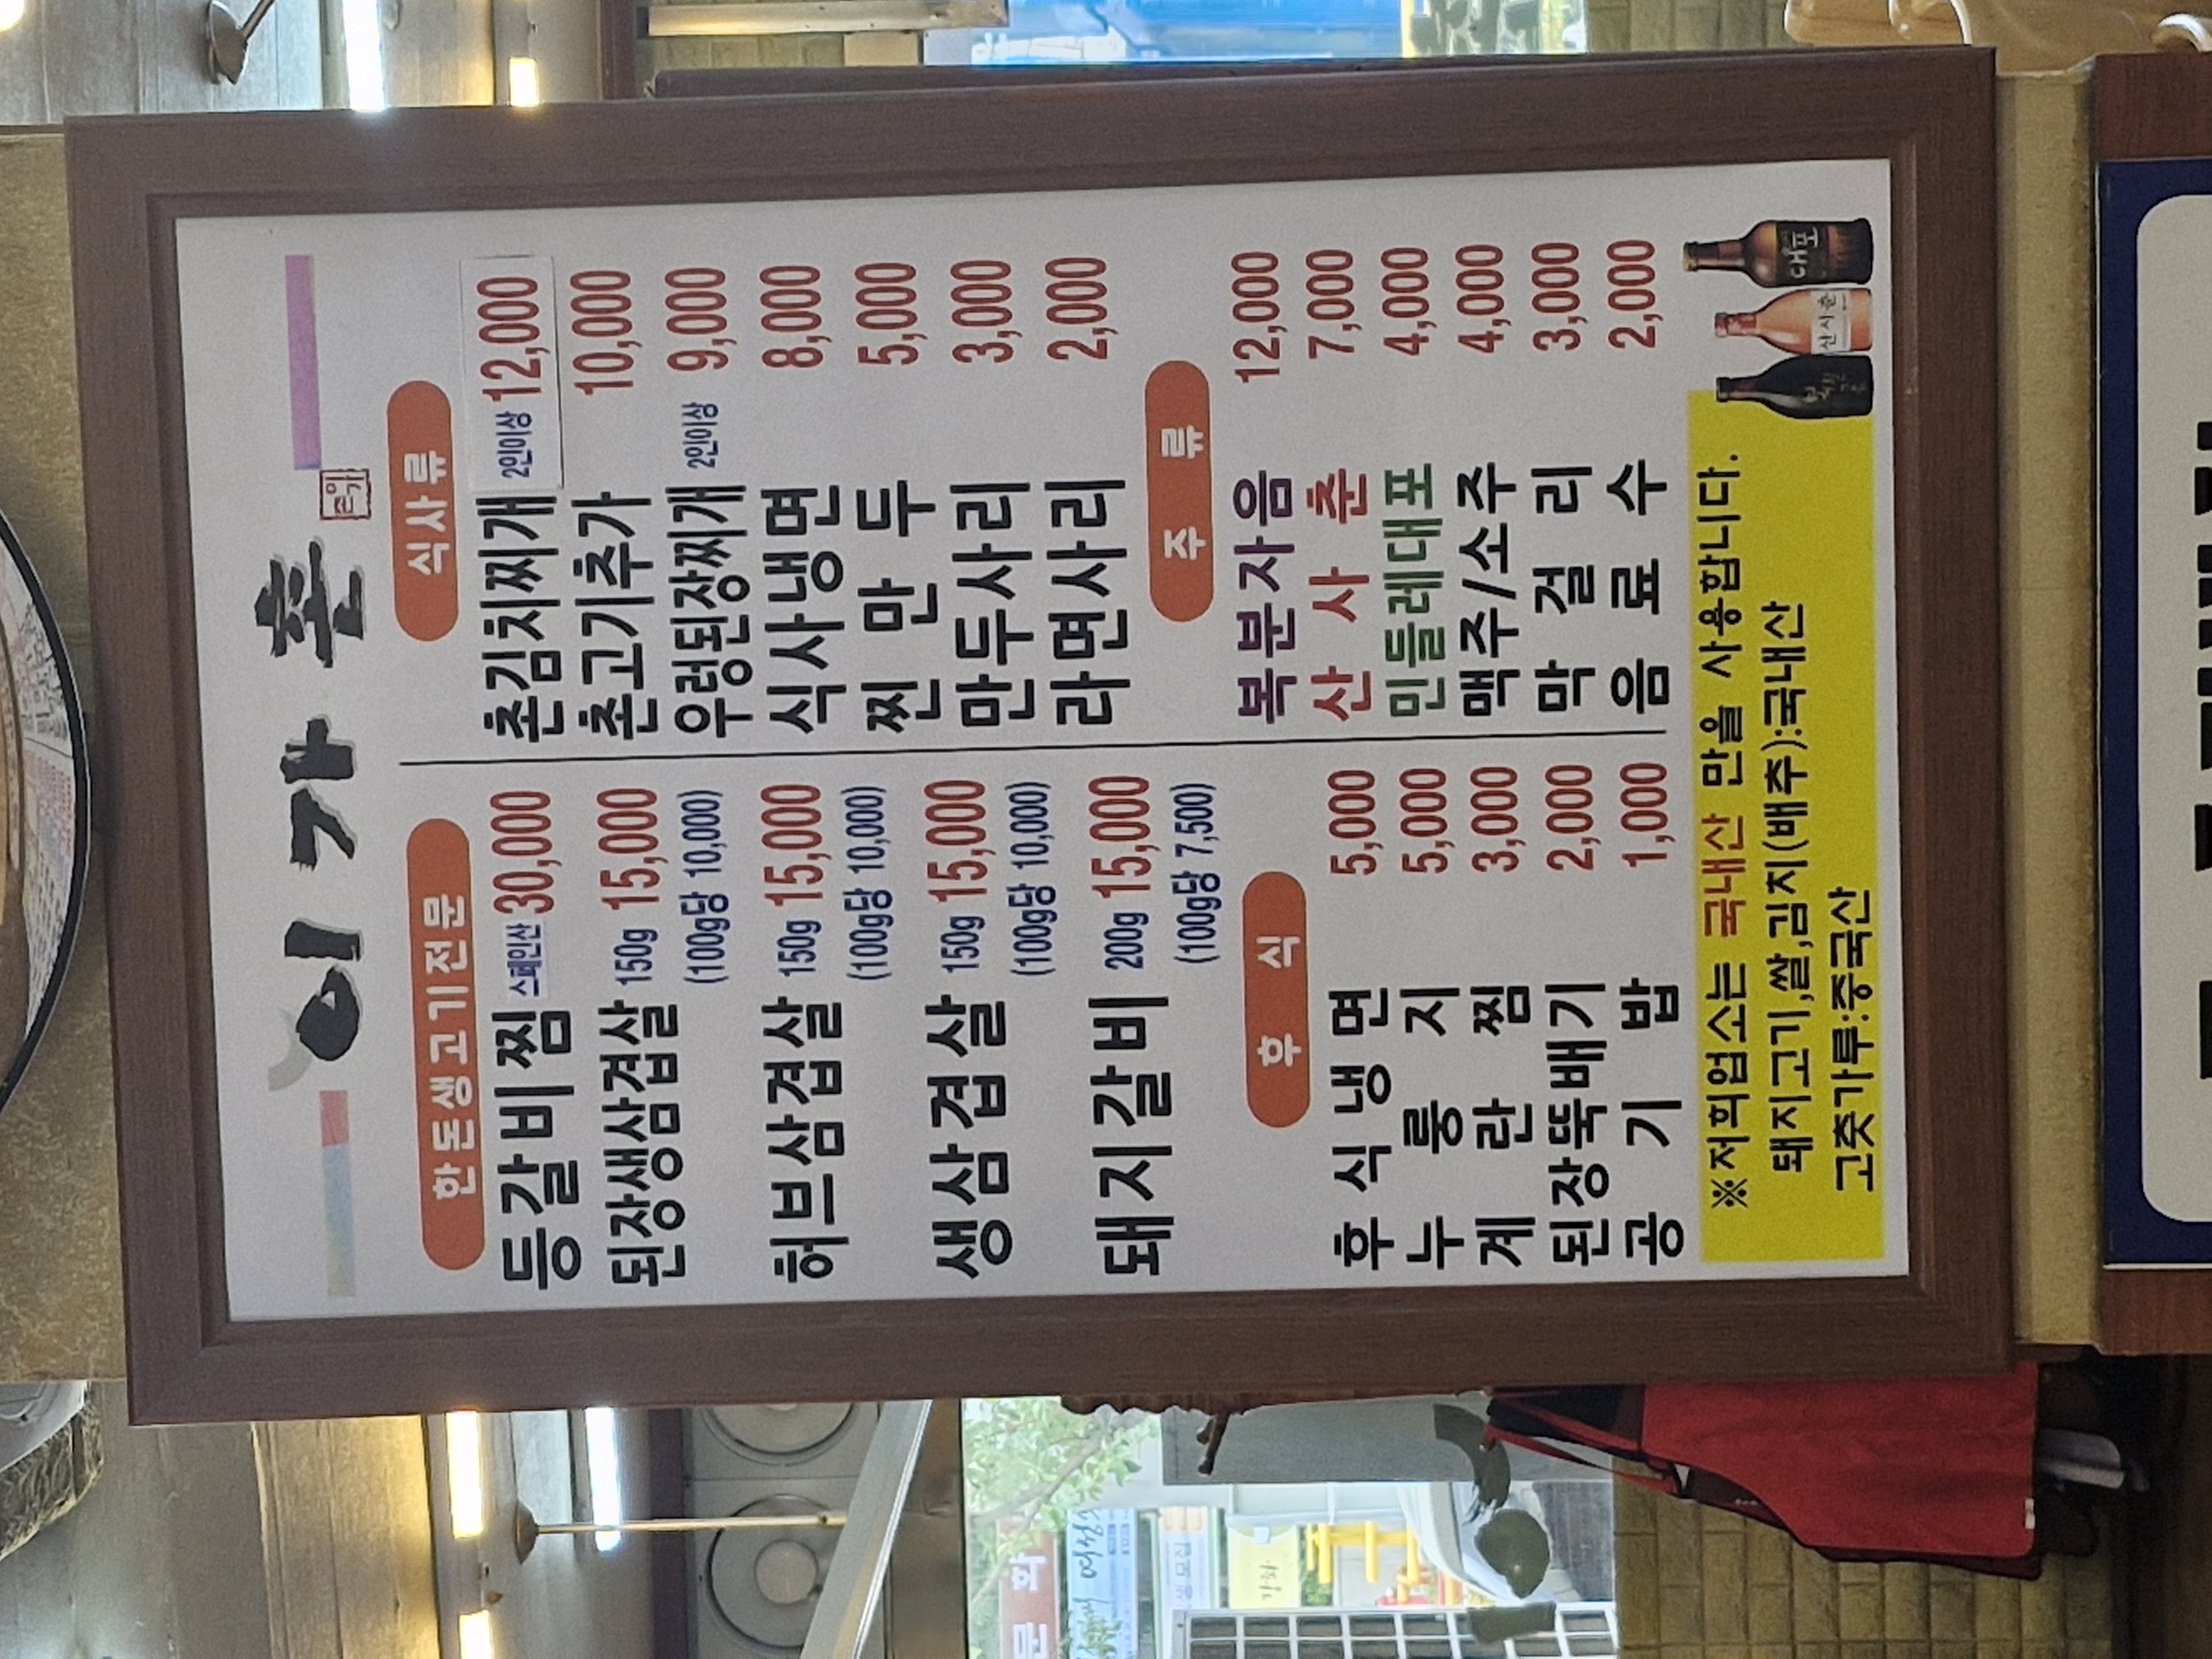 이가촌
한돈생고기전문
등갈비찜 스페인산 30,000
된장생삼겹살 150g 15,000
(100g당 10,000)
허브삼겹살 150g 15,000
(100g당 10,000)
생삼겹살 150g 15,000
(100g당 10,000)
돼지갈비 200g 15,000
(100g당 7,500)
후 식
후식냉면 5,000
누룽지 5,000
계란찜 3,000
된장뚝배기 2,000
공기밥 1,000
식사류
촌김치찌개 2인이상 12,000
촌고기추가 10,000
우렁된장찌개 2인이상 9,000
식사냉면 8,000
찐만두 5,000
만두사리 3,000
라면사리 2,000
주 류
복분자음 12,000
산사춘 7,000
민들레대포 4,000
맥주/소주 4,000
막걸리 3,000
음료수 2,000
※저희업소는 국내산 만을 사용합니다.
돼지고기,쌀,김치(배추):국내산
고춧가루:중국산
산사춘
대포
문화